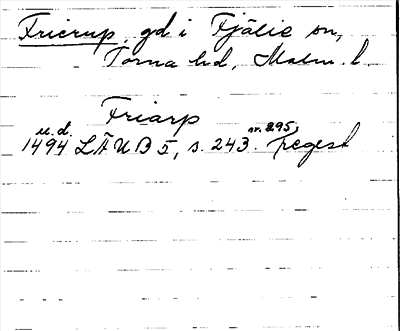 Frierup, gd i Fjälie sn,
Torna hd, Malm. l.
Friarp
u.d. nr. 295,
1494 LÄUB 5, s. 243. Regest